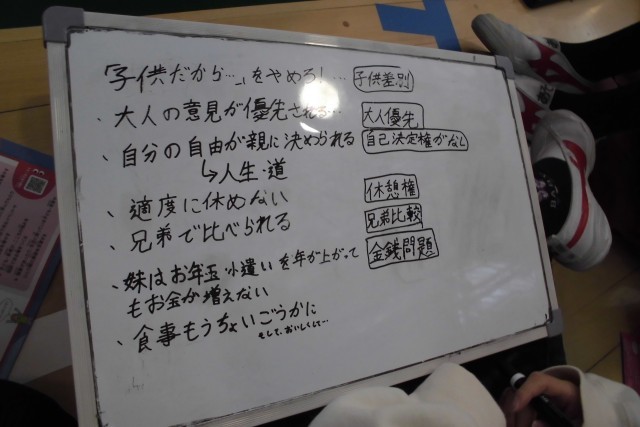 「子供だから…」をやめろ！… 子供差別
、大人の意見が優先される… 大人優先
、自分の自由が親に決められる 自己決定権がなし
↳人生・道
、適度に休めない 休憩権
、兄弟で比べられる 兄弟比較
、妹はお年玉 小遣いを年が上がって 金銭問題
もお金が増えない
、食事もうちょいごうかに
そして、おいしくして…